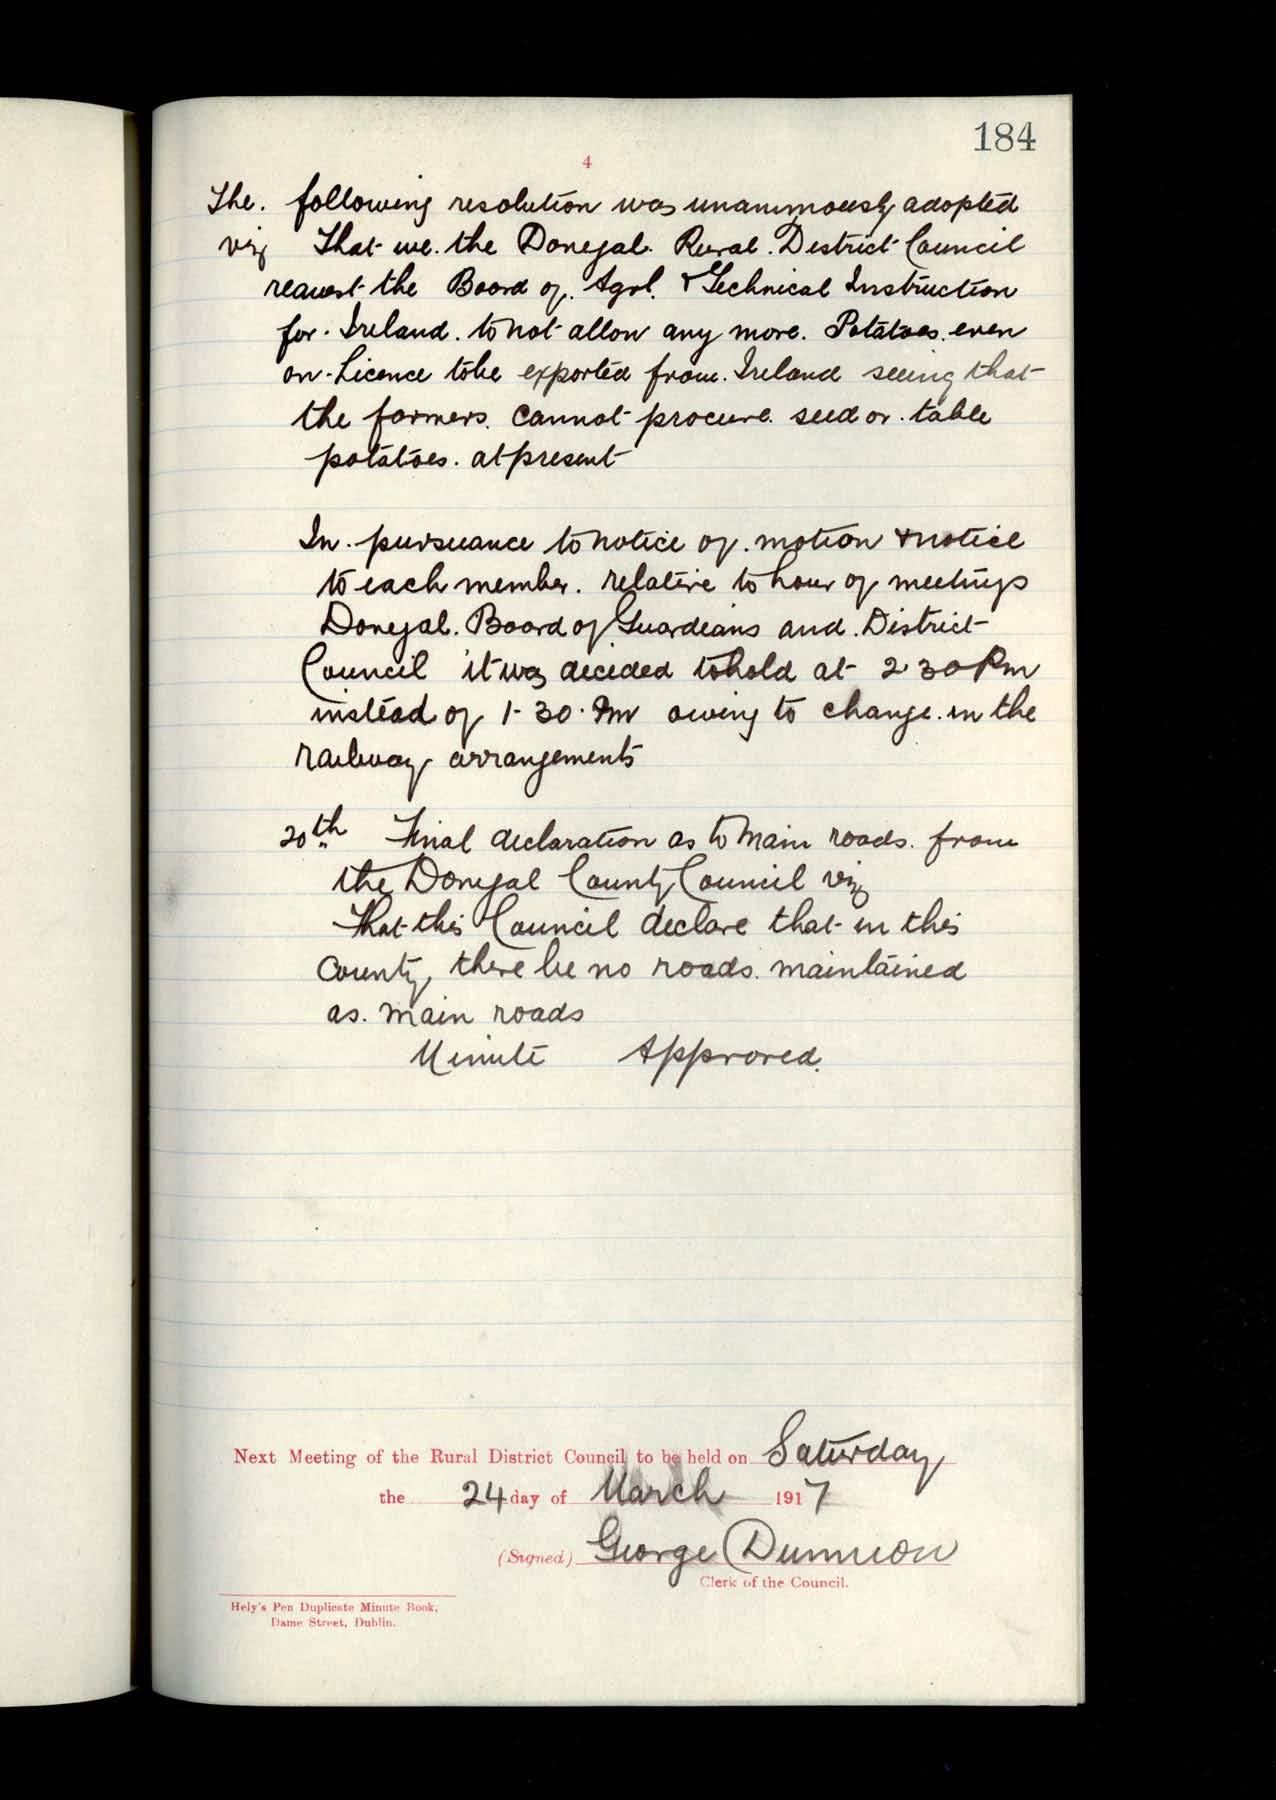 184
4
The following resolution was unanimously adopted
viz That we the Donegal Rural District Council
request the Board of Agrl. & Technical Instruction
for Ireland to not allow any more Potatoes even
on Licence to be exported from Ireland seeing that
the farmers cannot procure seed or table
potatoes at present
In pursuance to notice of motion & notice
to each member relative to hour of meetings
Donegal Board of Guardians and District
Council it was decided to hold at 2 30 Pm
instead of 1-30 Pm owing to change in the
railway arrangements
20th Final declaration as to Main roads from
the Donegal County Council viz
That this Council declare that in this
County, there be no roads maintained
as main roads
Minute Approved.
Next Meeting of the Rural District Council to be held on Saturday
the 24 day of March 1917
(Signed) George Dunnion
Clerk of the Council.
Hely's Pen Duplicate Minute Book,
Dame Street, Dublin.